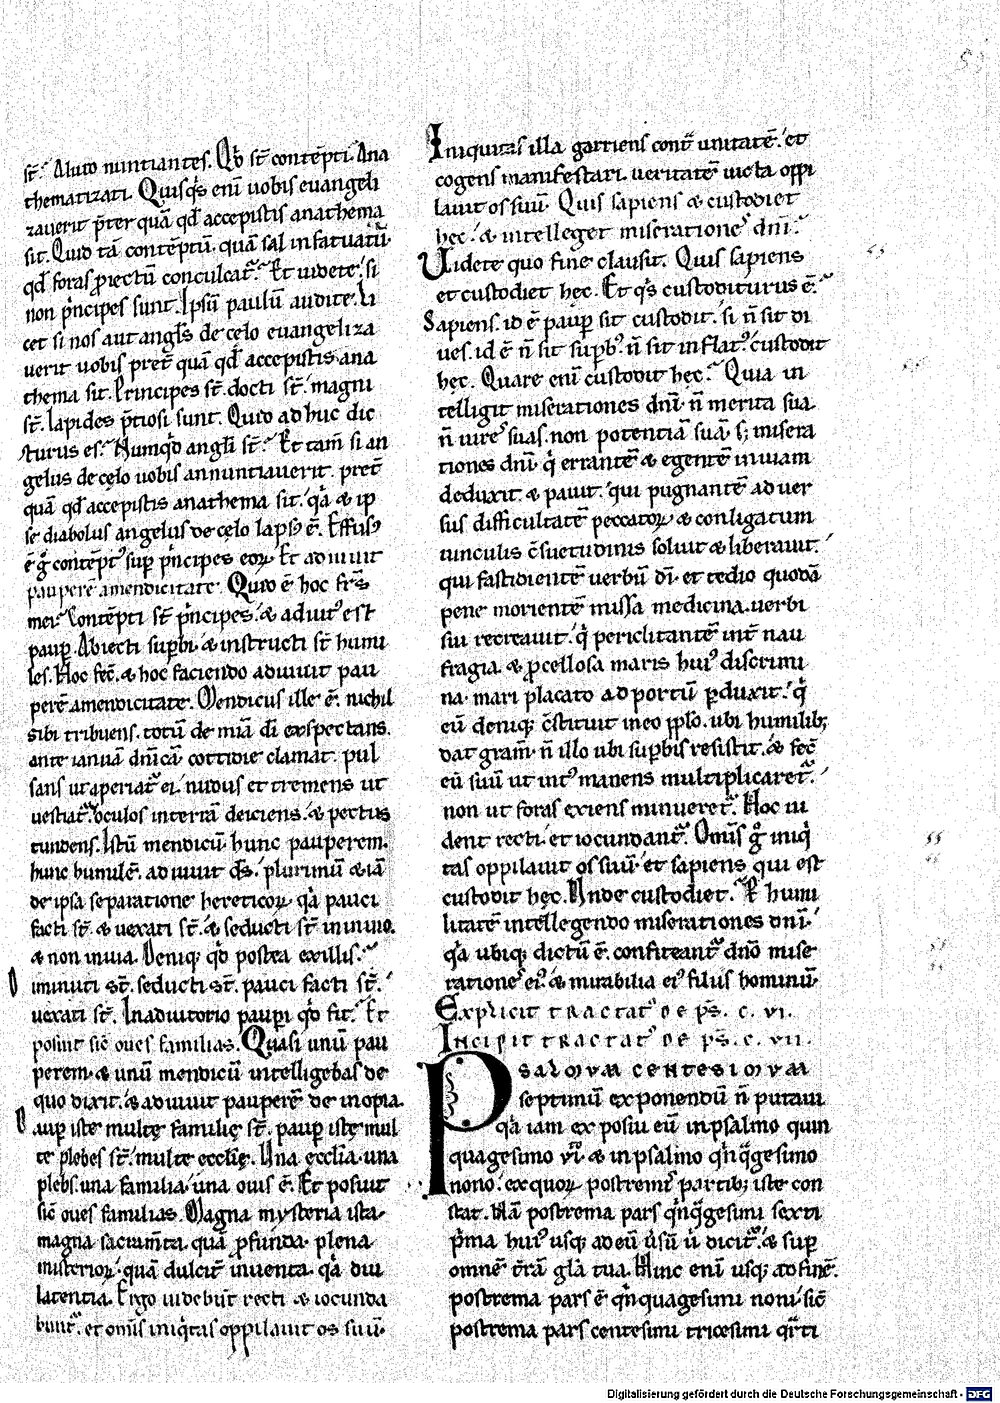 st̄. Aliud nuntiantes. Qd̄ st̄ contēpti. Ana
thematizati. Quisq̇s enī uobis euangeli
zauerit p̄ter quā qd̄ accepistis anathema
sit. Quid tā contēptū. quā sal infatuatū.
qd̄ foras proiectū conculcat᷑. Et uidete. si
non p̍ncipes sunt. Ipsū paulū audite. Li
cet si nos aut angłs de cęlo euangeliza
uerit uobis pret̄ quā qd̄ accepistis ana
thema sit. Principes st̄. docti st̄. magni
st̄. lapides p̄tiosi sunt. Quid adhuc dic
turus es. Numqd̄ angłi st̄. Et tam̄ si an
gelus de cęlo uobis annuntiauerit pret̄
quā qd̄ accepistis anathema sit. qa̍ & ip
se diabolus angelus de cęlo laps᷒ ē. Effus᷒
ē g̊ contēpt᷒ sup̄ p̍ncipes eoꝝ. Et adiuuit
pauperē amendicitate. Quid ē hoc fr̄s
mei. Contēpti st̄ p̍ncipes. & adiut᷒ est
paup̄. Abiecti sup̄bi. & instructi st̄ humi
les. Hoc fec̄. & hoc faciendo adiuuit pau
perē amendicitate. Mendicus ille ē. nichil
sibi tribuens. totū de mīa dī exspectans.
ante ianuā dn̄icā cottidie clamat. pul
sans ut aperiat᷑ ei. nudus et tremens ut
uestiat᷑. oculos interrā deiciens. & pectus
tundens. Istū mendicū hunc pauperem.
hunc humilē. adiuuit d̄s. plurimū & iā
de ipsa separatione hereticoꝝ. qa̍ pauci
facti st̄. & uexati st̄. & seducti st̄ in inuio.
& non in uia. Deniq; qd̄ postea exillis.
Iminuti st̄. seducti st̄. pauci facti st̄.
uexati st̄. Inadiutorio paup̄i qd̄ fit. Et
posuit sic̄ oues familias. Quasi unū pau
perem & unū mendicū intelligebas de
quo dixit. & adiuuit pauperē de inopia.
Paup̄ iste multę familię st̄. paup̄ iste mul
te plebes st̄. multe eccłię. Una eccłia. una
plebs. una familia. una ouis ē. Et posuit
sic̄ oues familias. Magna mysteria ista.
magna sacram̄ta. quā profunda. plena
misterioꝝ. quā dulcit̄ inuenta. qa̍ diu
latentia. Ergo uidebūt recti & iocunda
bunt᷑. et om̄is iniq̍tas oppilauit os suū.
Iniquitas illa garriens cont̄ unitatē. et
cogens manifestari ueritatē uicta oppi
lauit os suū. Quis sapiens & custodiet
hęc. & intelleget miserationes dn̄i.
Uidete quo fine clausit. Quis sapiens
et custodiet hęc. Et q̍s custoditurus ē.
Sapiens. id ē paup̄ sit custodit. si n̄ sit di
ues. id ē n̄ sit sup̄b᷒. n̄ sit inflat᷒. custodit
hęc. Quare enī custodit hęc. Quia in
telligit miserationes dn̄i. n̄ merita sua.
n̄ uires suas. non potentiā suā. s; misera
tiones dn̄i. q̍ errantē & egentē inuiam
deduxit. & pauit. qui pugnantē aduer
sus difficultatē peccatoꝝ & conligatum
uinculis c̄suetudinis soluit & liberauit.
qui fastidientē uerbū dī. et tedio quodā
pene morientē missa medicina. uerbi
sui recreauit. q̍ periclitantē int̄ nau
fragia & procellosa maris hui᷒ discrimi
na. mari placato ad portū perduxit. q̍
eū deniq; c̄stituit in eo pplo. ubi humilib;
dat gram̄. n̄ illo ubi sup̄bis resistit. & fec̄
eū suū ut int᷒ manens multiplicaret᷑.
non ut foras exiens minueret᷑. Hoc ui
dent recti. et iocundant᷑. Om̄is g̊ iniq̍
tas oppilauit os suū. et sapiens qui est
custodit hęc. Unde custodiet. P humi
litatē intellegendo miserationes dn̄i.
qa̍ ubiq; dictū ē. confiteant᷑ dn̄o mise
rationes ei᷒. & mirabilia ei᷒ filiis hominū.
Explicit tractat᷒ de ps̄. c. vi.
Incipit tractat᷒ de ps̄. c. vii.
Psalmum centesimum
septimū exponendū n̄ putaui
qa̍ iam exposui eū inpsalmo quin
quagesimo vi̊. & inpsalmo q̍nq̍gesimo
nono. exquoꝝ postremis partib; iste con
stat. Nā postrema pars q̍nq̍gesimi sexti
p̍ma hui᷒ usq; ad eū ūsū ū dicit᷑. & sup̄
omnē t̄rā gła tua. Hinc enī usq; ad finē.
postrema pars ē q̍nquagesimi noni. sic̄
postrema pars centesimi tricesimi q̍rti
Digitalisierung gefördert durch die Deutsche Forschungsgemeinschaft - DFG